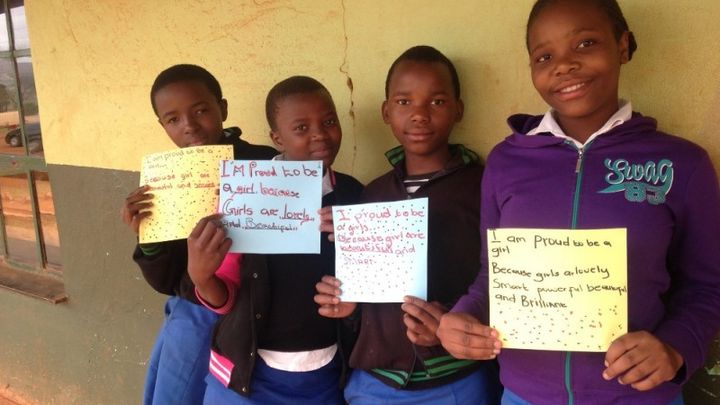 I am proud to be a
girl
because girl are
I'm Proud To be
a girl because
Girls are lovely
and Beautiful
I proud to be
a girls.
Because girl are
beautiful and
smart
I am proud to be a
girl
Because girls arlovely
Smart powerful beautiful
and Brilliane
Swag
83